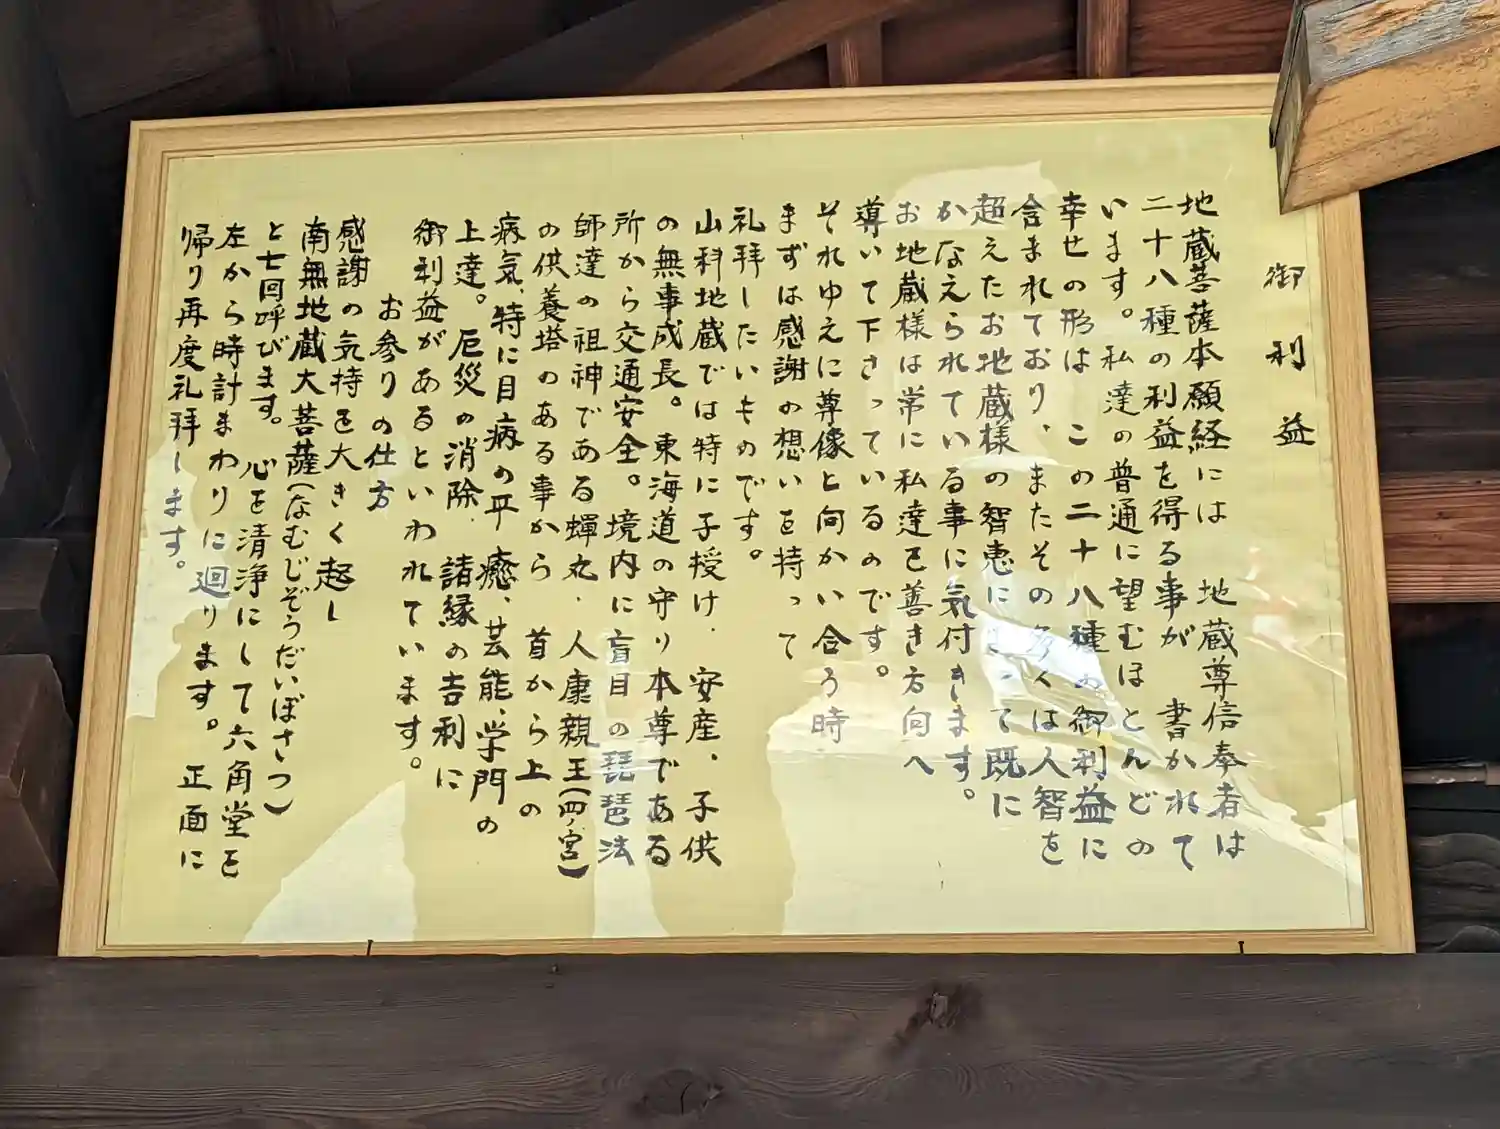 御利益
地蔵菩薩本願経には 地蔵尊信奉者は
二十八種の利益を得る事が 書かれて
います。私達の普通に望むほとんどの
幸せの形は この二十八種の御利益に
含まれており、またその多くは人智を
超えたお地蔵様の智恵によって既に
かなえられている事に気付きます。
お地蔵様は常に私達を善き方向へ
導いて下さっているのです。
それゆえに尊像と向かい合う時
まずは感謝の想いを持って
礼拝したいものです。
山科地蔵では特に子授け、安産、子供
の無事成長。東海道の守り本尊である
所から交通安全。境内に盲目の琵琶法
師達の祖神である蝉丸、人康親王(四ノ宮)
の供養塔のある事から 首から上の
病気、特に目病の平癒、芸能、学門の
上達。厄災の消除、諸縁の吉利に
御利益があるといわれています。
お参りの仕方
感謝の気持を大きく起し
南無地蔵大菩薩(なむじぞうだいぼさつ)
と七回呼びます。心を清浄にして六角堂を
左から時計まわりに廻ります。正面に
帰り再度礼拝します。